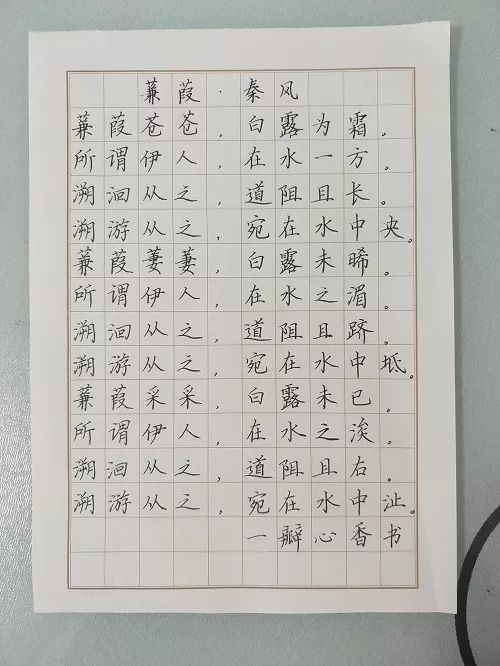 蒹葭·秦风
蒹葭苍苍，白露为霜。
所谓伊人，在水一方。
溯洄从之，道阻且长。
溯游从之，宛在水中央。
蒹葭萋萋，白露未晞。
所谓伊人，在水之湄。
溯洄从之，道阻且跻。
溯游从之，宛在水中坻。
蒹葭采采，白露未已。
所谓伊人，在水之涘。
溯洄从之，道阻且右。
溯游从之，宛在水中沚。
一瓣心香书